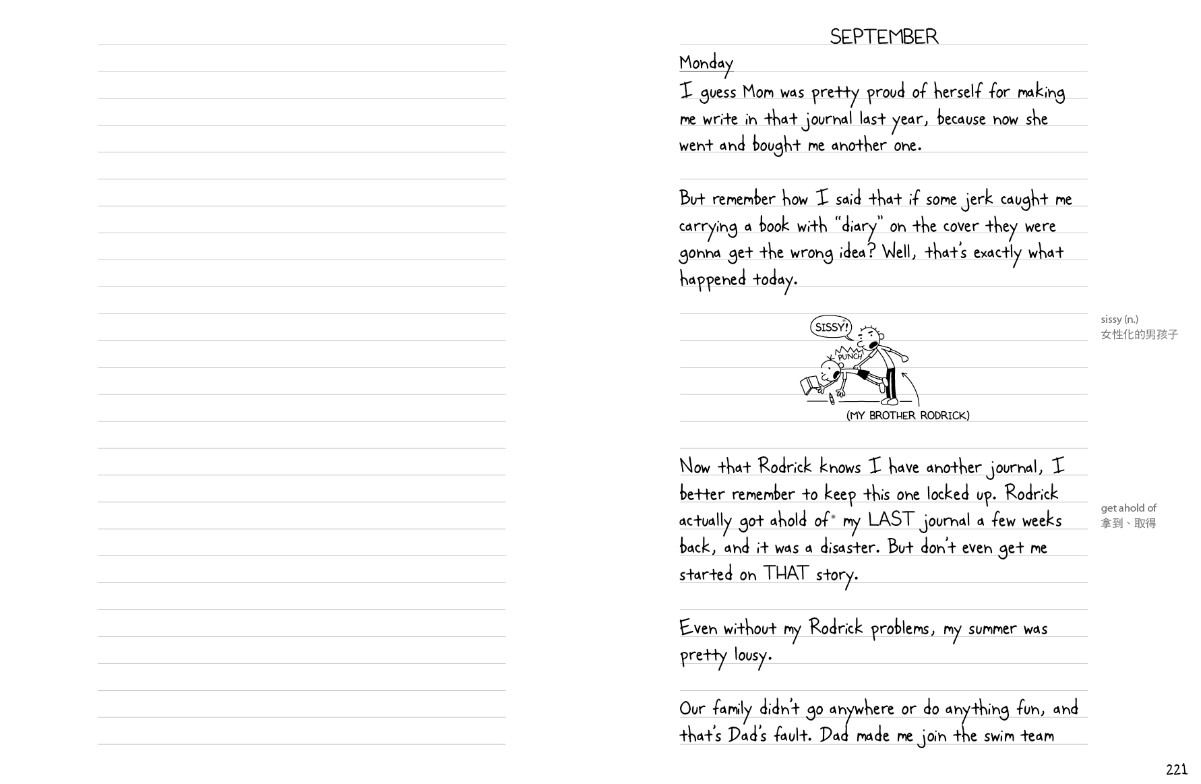 SEPTEMBER
Monday
I guess Mom was pretty proud of herself for making
me write in that journal last year, because now she
went and bought me another one.
But remember how I said that if some jerk caught me
carrying a book with “diary” on the cover they were
gonna get the wrong idea? Well, that's exactly what
happened today.
SISSY!*
PUNCH
(MY BROTHER RODRICK)
sissy (n.)
女性化的男孩子
Now that Rodrick knows I have another journal, I
better remember to keep this one locked up. Rodrick
actually got ahold of* my LAST journal a few weeks
back, and it was a disaster. But don't even get me
started on THAT story.
get ahold of
拿到、取得
Even without my Rodrick problems, my summer was
pretty lousy.
Our family didn't go anywhere or do anything fun, and
that's Dad's fault. Dad made me join the swim team
221